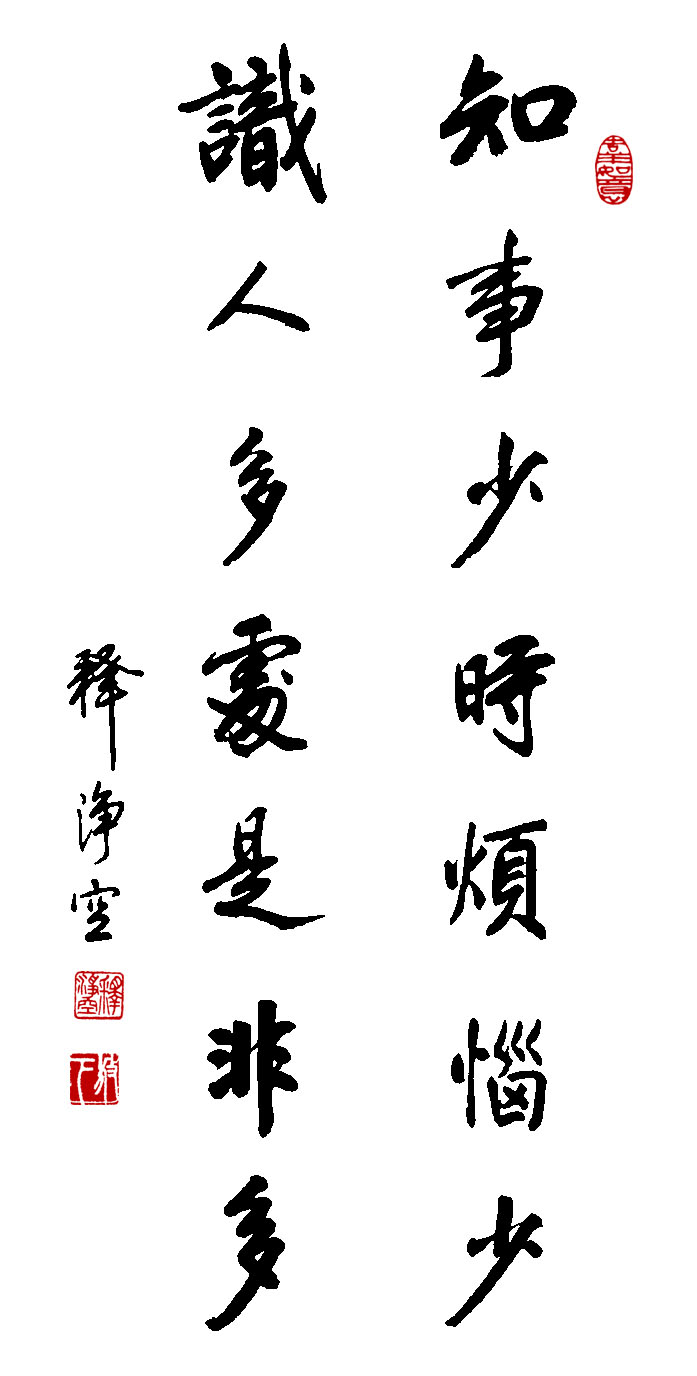 知事少時煩惱少
識人多處是非多
釋淨空